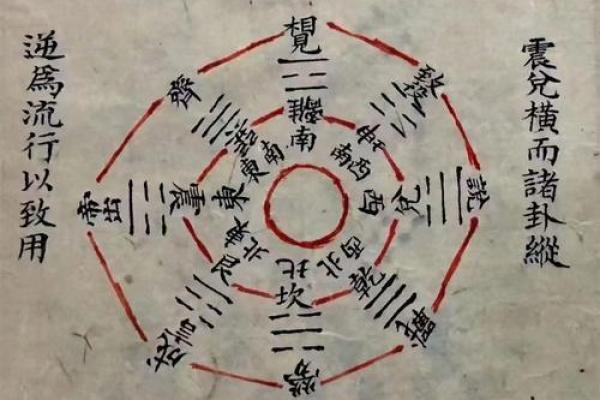 震兌橫而諸卦縱
逆爲流行以致用
相見
離
南
致役
坤
西南
說
兌
西
戰
乾
西北
勞
坎
北
成言
艮
東北
帝出
震
東
齊
巽
東南